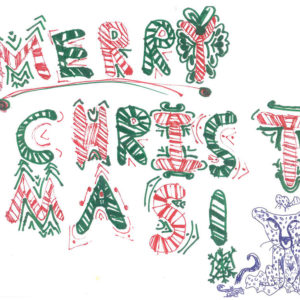 MERRY
CHRIST
MAS!